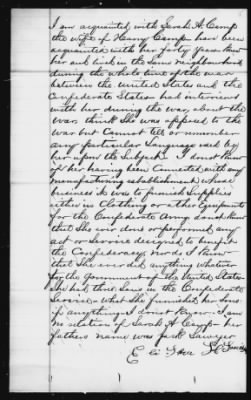 I am acquainted with Sarah A. Camp
the wife of Harvy Camp have been
acquainted with her fifty years known
her and lived in the same neighbourhood
during the whole time of the war
between the United States and the
Confederate States had interviews
with her during the war, about the
war, think She was opposed to the
war but cannot tell or remember
any particular language used by
her upon the Subject. I don't know
of her having been connected with any
manufacturing establishment whose
business it was to furnish Supplies
either in Clothing or other Equipments
for the Confederate Army dont know
that She ever done or performed any
act or Service designed to benefit
the Confederacy nor do I know
that She ever did anything whatever
for the Government of the United States
She had three Sons in the Confederate
Service what She furnished her Sons
if anything I dont know. I am
no relation of Sarah A Camp her
fathers name was Jack Sawyer